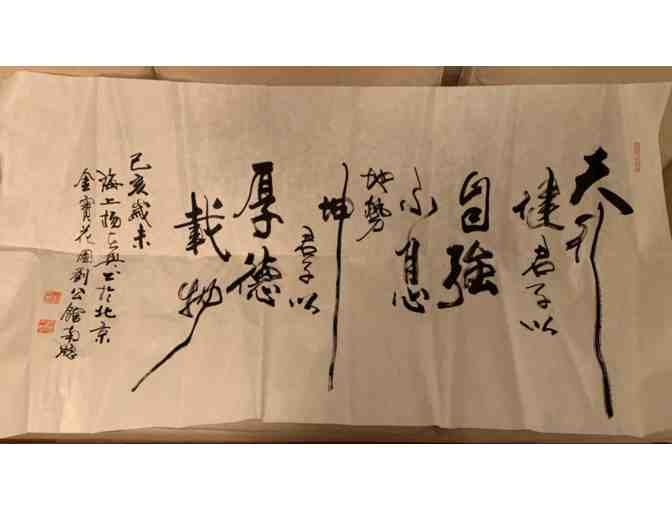 天行
健君子以
自強
不息
地勢
坤
君子以
厚德
載物
己亥歲末
海上楊 書於北京
金寶花園劉公館南